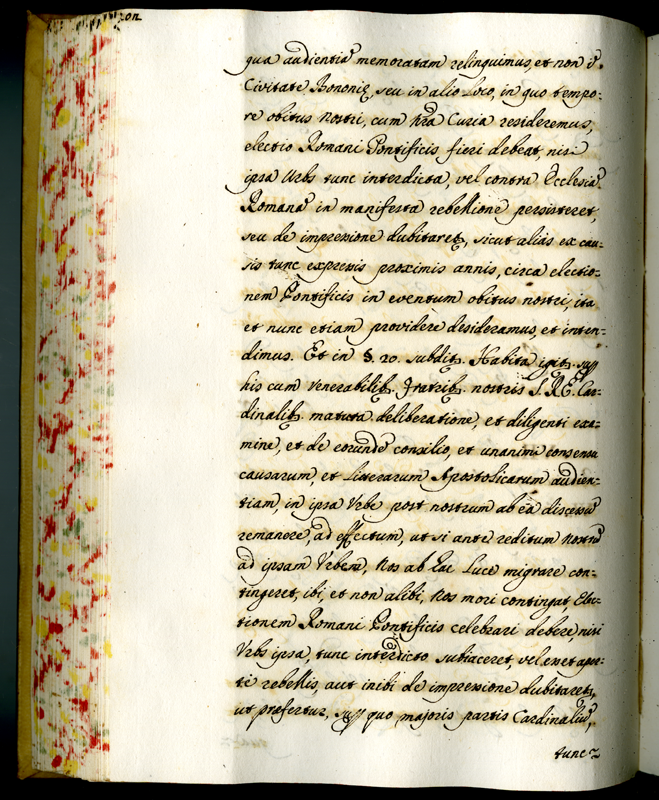 qua audientiã memoratam relinquimus, et non ĩ
Civitate Bononię, seu in alio Loco, in quo tempo:
re obitus Nostri, cum nr̃a Curia resideremus,
electio Romani Pontificis fieri debeat, nisi
ipsa Urbs tunc interdicta, vel contra Ecclesiã
Romanã in manifesta rebellione persisteret,
seu de impressione dubitaret, sicut alias ex cau:
sis tunc expressis proximis annis, circa electio:
nem Pontificis in eventum obitus nostri, ita
et nunc etiam providere desideramus, et inten:
dimus. Et in §. 20. subdit. Habita igit. sup
his cum Venerabilib. Fratrib. nostris S.R.E. Car:
dinalib. matura deliberatione, et diligenti exa:
mine, et de eorundẽ consilio, et unanimi consensu
causarum, et Literarum Apostolicarum audien:
tiam, in ipsa Urbe post nostrum ab eà discessũ
remanere, ad effectum, ut si ante reditum Nostrũ
ad ipsam Urbem, Nos ab hac Luce migrare con:
tingeret, ibi, et non alibi, Nos mori contingat, Elec:
tionem Romani Pontificis celebrari debere, nisi
Urbs ipsa, tunc interdicto subiaceret, vel esset aper:
tè rebellis, aut inibi de impressione dubitaret,
ut præfertur, sup quo, majoris partis Cardinaliũ,
tunc